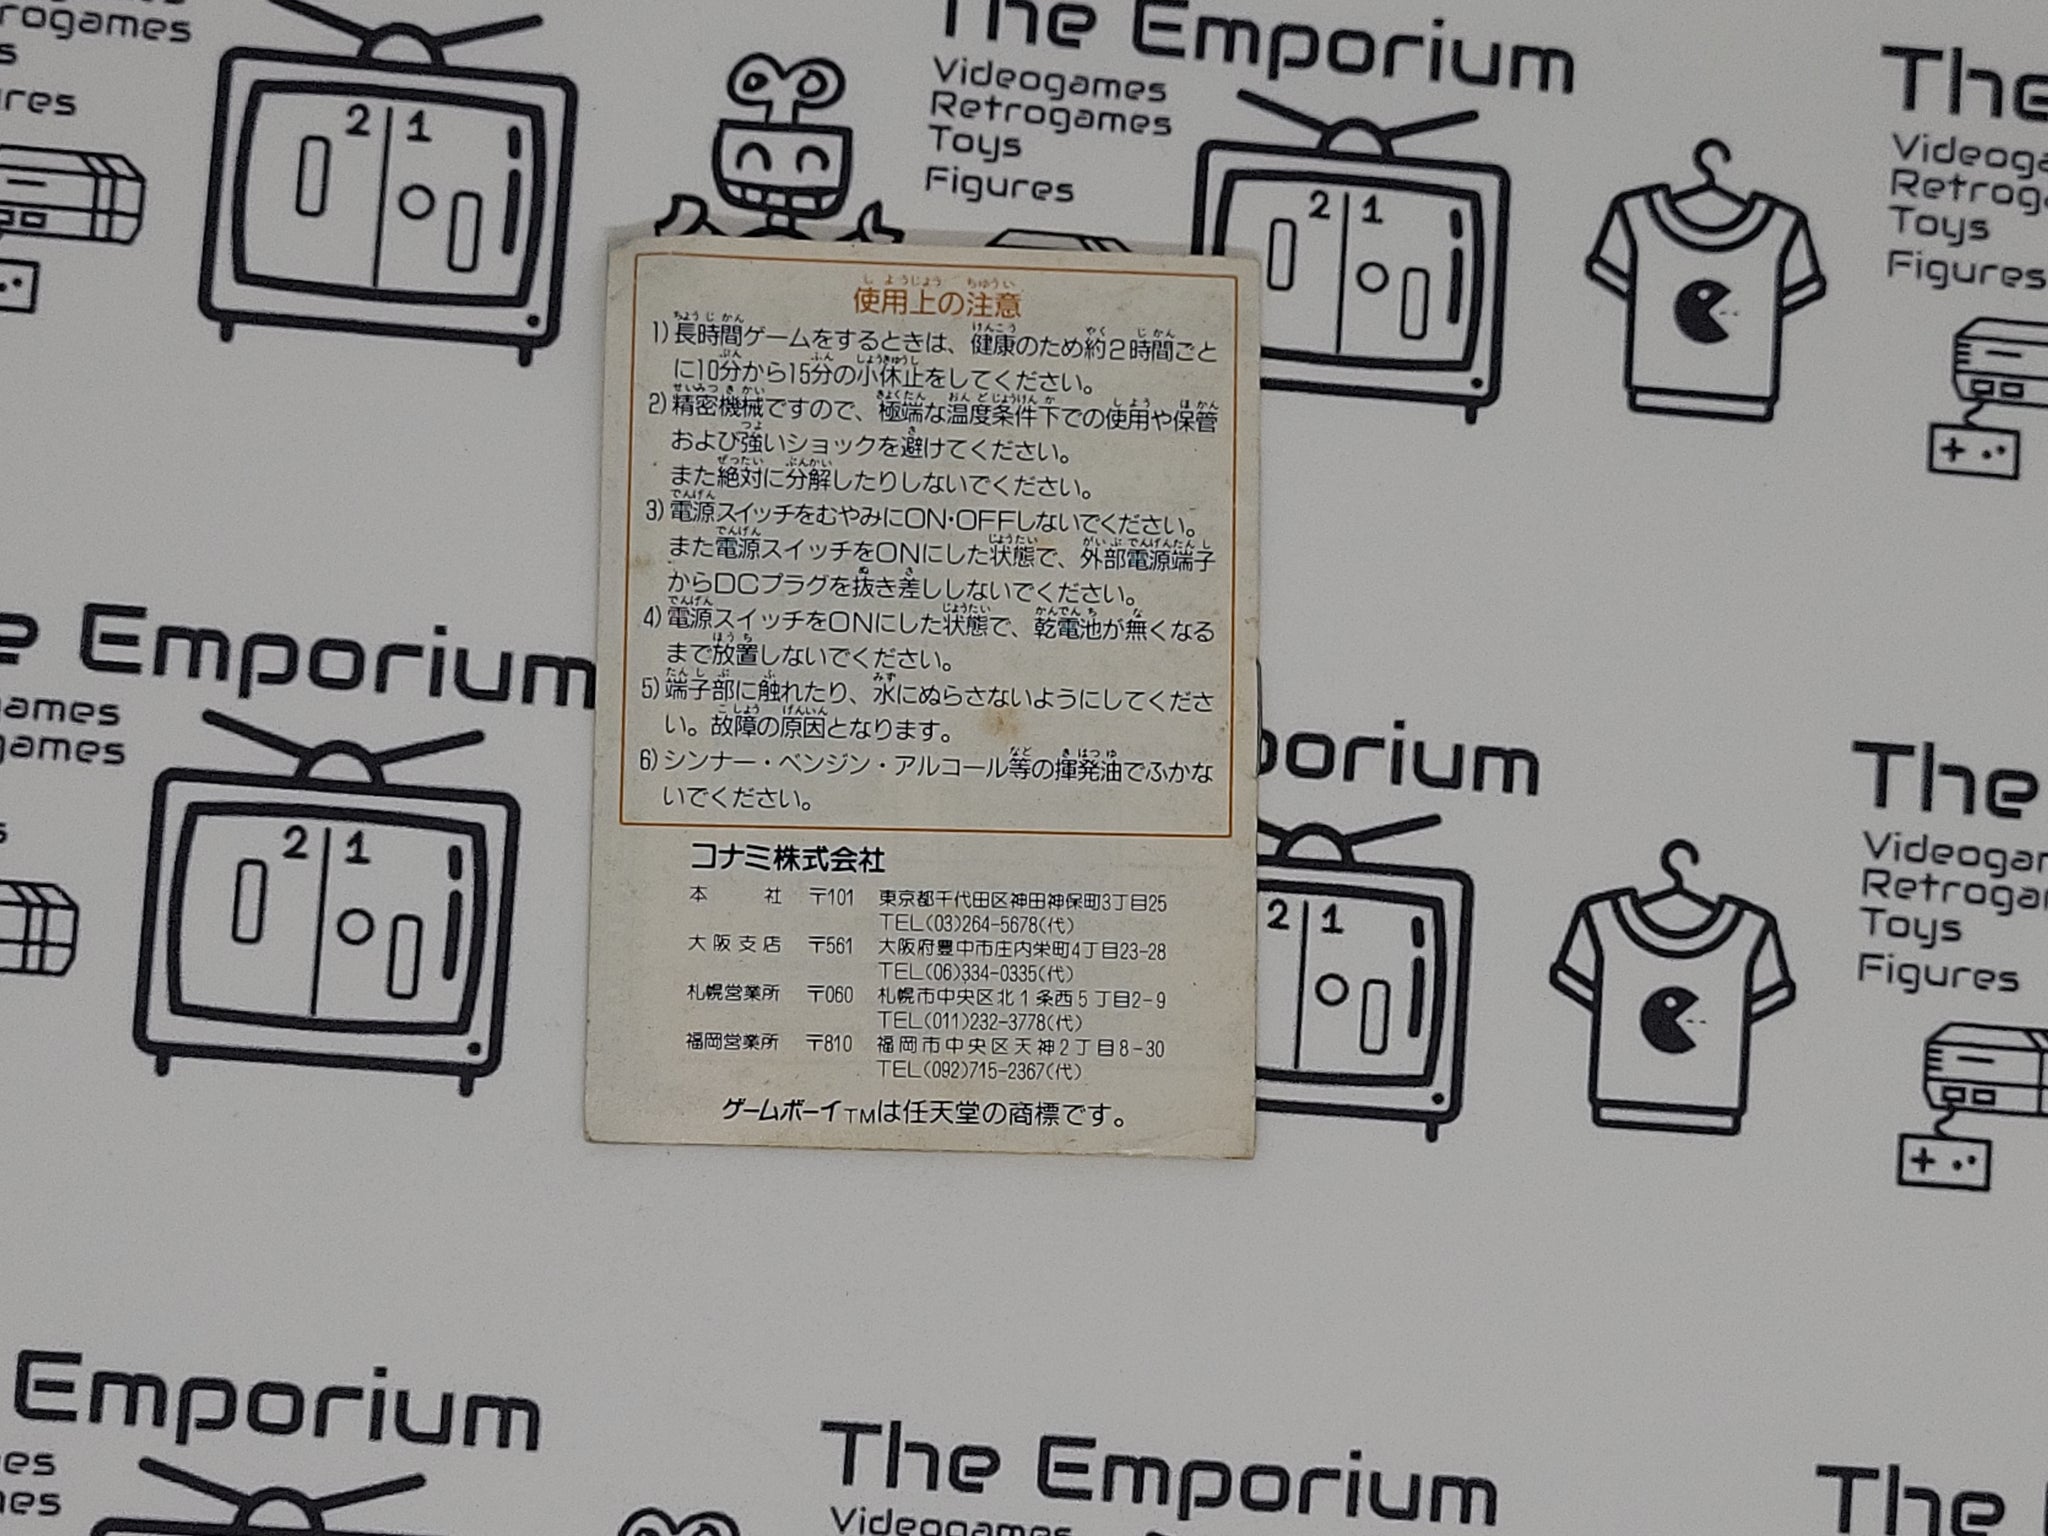 rogames
The Emporium
Videogames
Retrogames
Toys
Figures
The
Videoga
Retrog
Toys
Figures
ures
2 1
2 1
使用上の注意
1)長時間ゲームをするときは、健康のため約2時間ごと
に10分から15分の小休止をしてください。
2)精密機械ですので、極端な温度条件下での使用や保管
および強いショックを避けてください。
また絶対に分解したりしないでください。
3)電源スイッチをむやみにON・OFFしないでください。
また電源スイッチをONにした状態で、外部電源端子
からDCプラグを抜き差ししないでください。
4)電源スイッチをONにした状態で、乾電池が無くなる
まで放置しないでください。
5)端子部に触れたり、水にぬらさないようにしてくださ
い。故障の原因となります。
6)シンナー・ベンジン・アルコール等の揮発油でふかな
いでください。
コナミ株式会社
本社 〒101 東京都千代田区神田神保町3丁目25
TEL(03)264-5678(代)
大阪支店 〒561 大阪府豊中市庄内栄町4丁目23-28
TEL(06)334-0335(代)
札幌営業所 〒060 札幌市中央区北1条西5丁目2-9
TEL(011)232-3778(代)
福岡営業所 〒810 福岡市中央区天神2丁目8-30
TEL(092)715-2367(代)
ゲームボーイTMは任天堂の商標です。
e Emporium
ames
games
2 1
porium
2 1
The
Videogar
Retrogar
Toys
Figures
Emporium
es
nes
The Emporium
Videogames
The